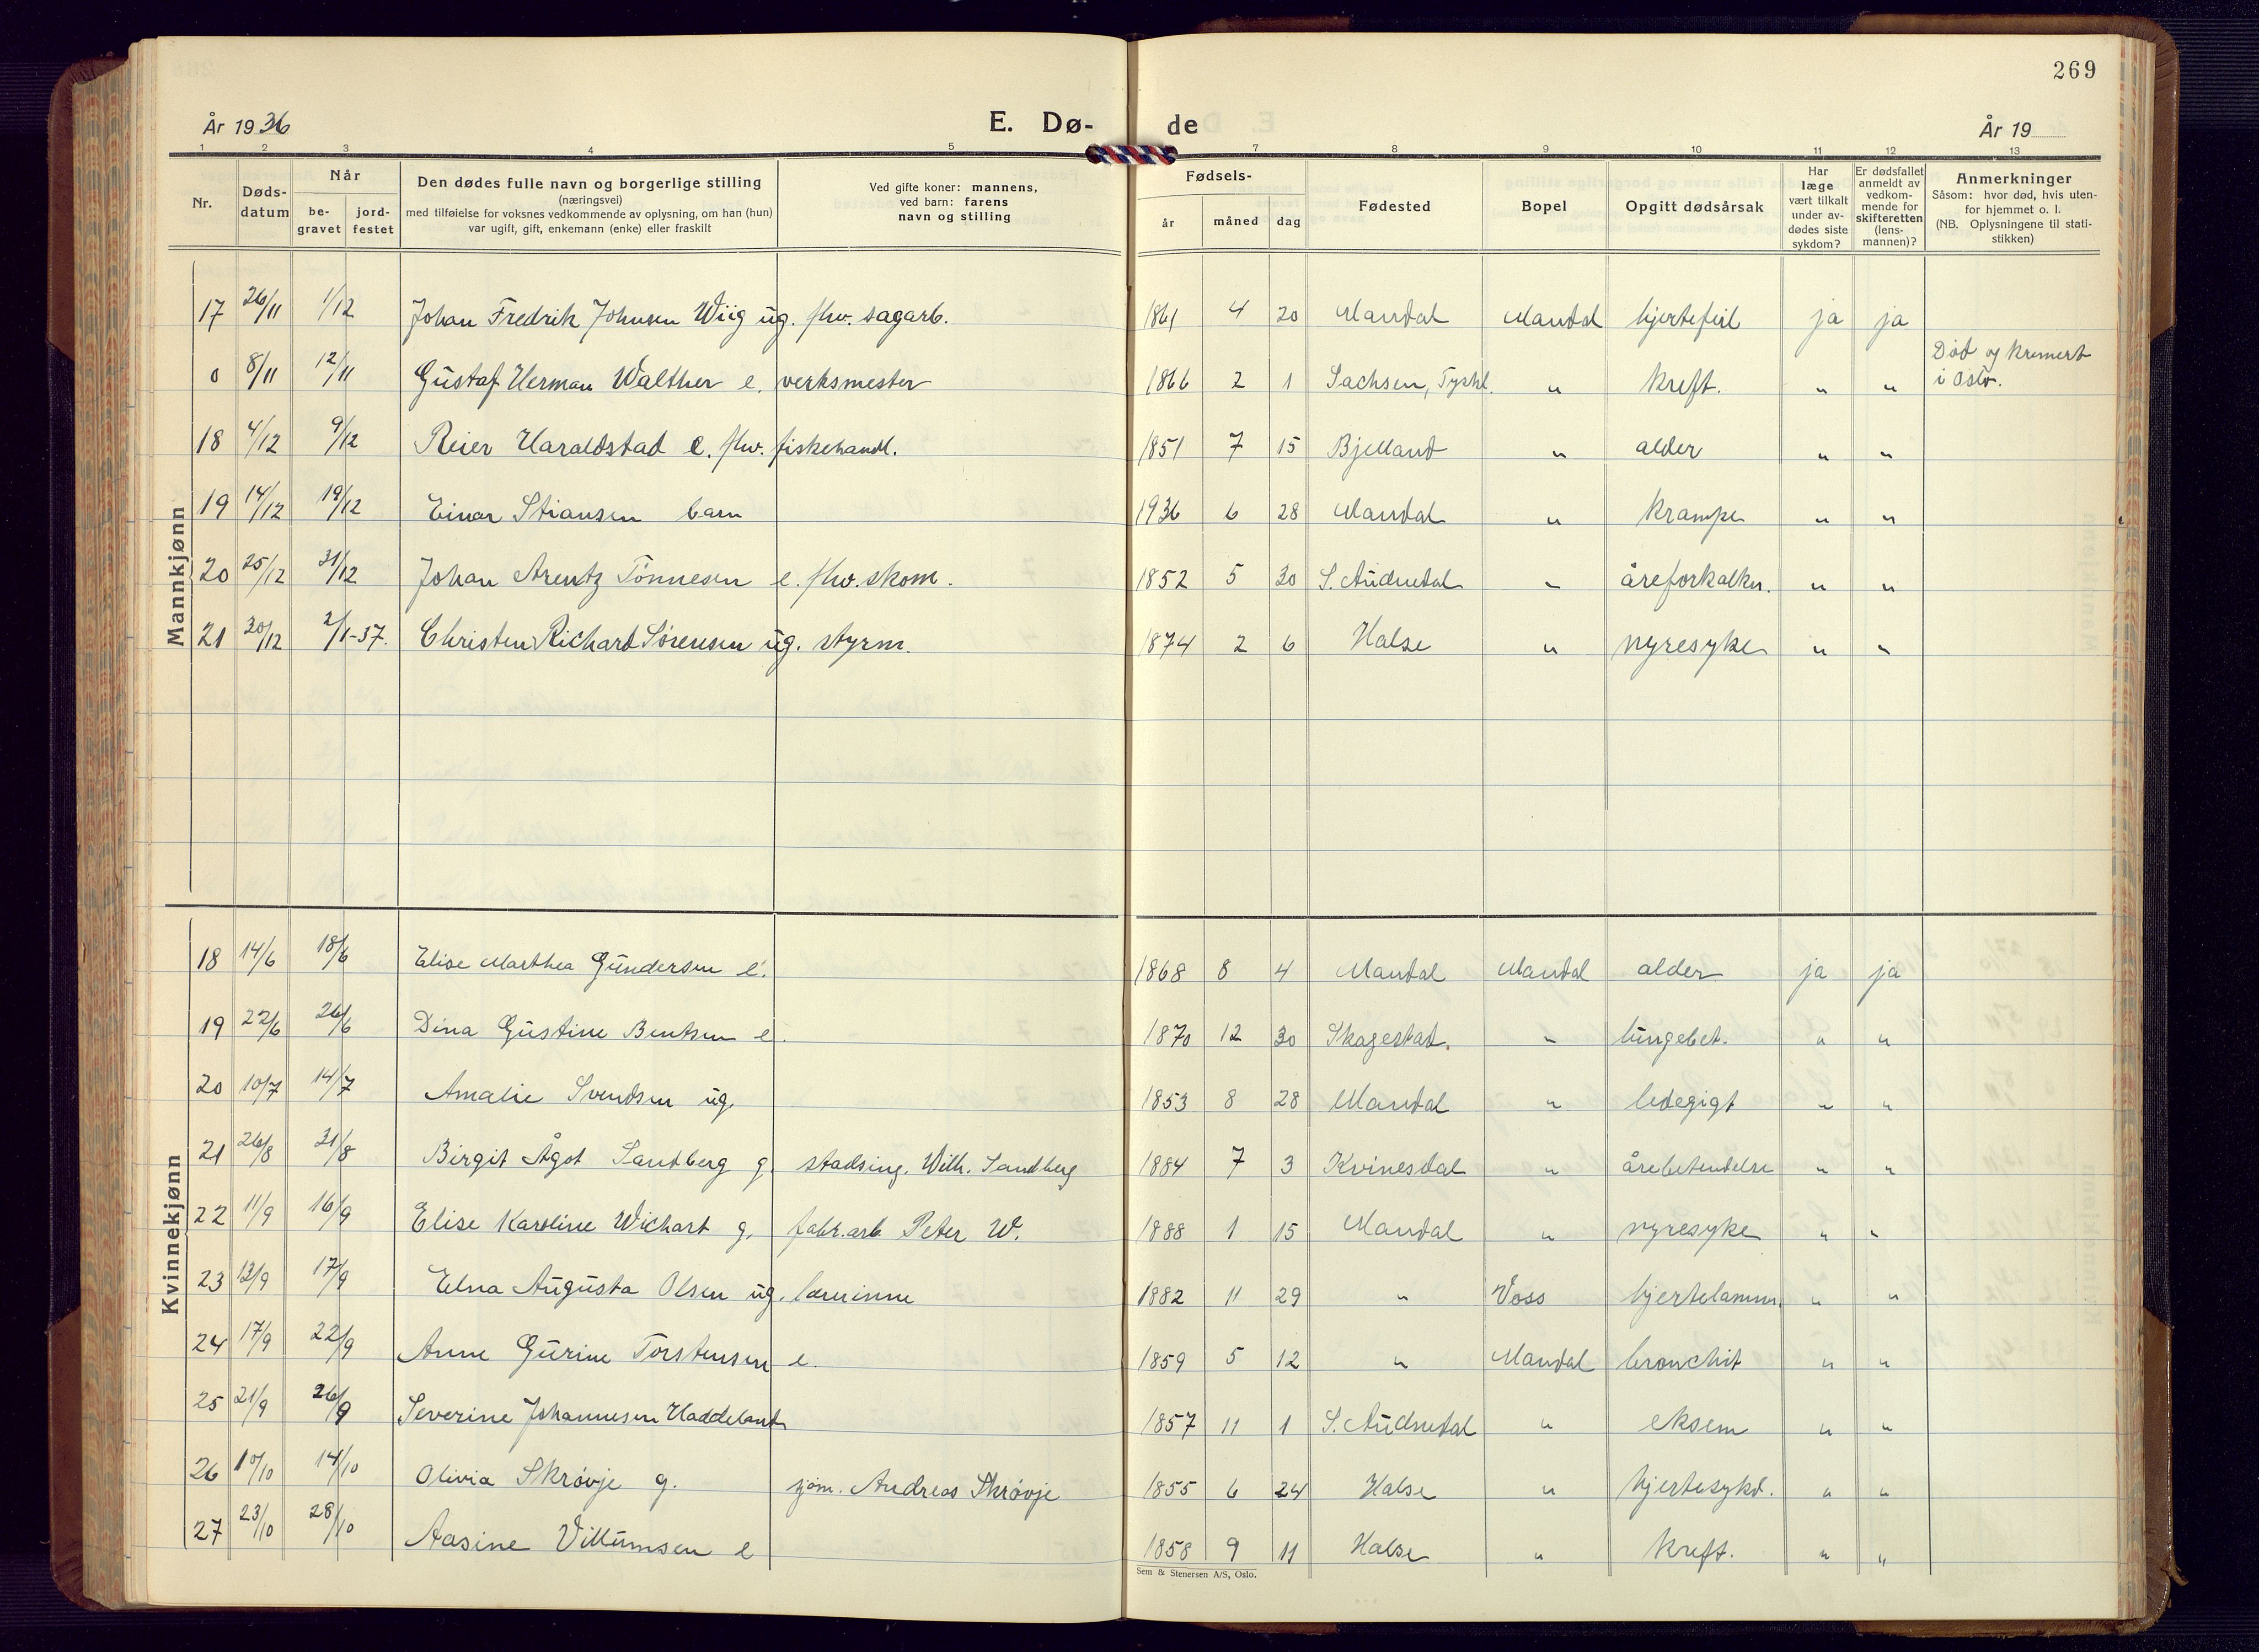 269
År 1936 E. Dø- de År 19
1 2 3 4 5 7 8 9 10 11 12 13
Nr.
Døds-
datum
Når
be-
gravet
jord-
festet
Den dødes fulle navn og borgerlige stilling
(næringsvei)
med tilføielse for voksnes vedkommende av oplysning, om han (hun)
var ugift, gift, enkemann (enke) eller fraskilt
Ved gifte koner: mannens,
ved barn: farens
navn og stilling
Fødsels-
år måned dag
Fødested
Bopel
Opgitt dødsårsak
Har
læge
vært tilkalt
under av-
dødes siste
sykdom?
Er dødsfallet
anmeldt av
vedkom-
mende for
skifteretten
(lens-
mannen)?
Anmerkninger
Såsom: hvor død, hvis uten-
for hjemmet o. l.
(NB. Oplysningene til stati-
stikken)
Mannkjønn
17 26/11 1/12 Johan Fredrik Johnsen Wiig ug. fhv. sagarb. 1861 4 20 Mandal Mandal hjertefeil ja ja
0 8/11 12/11 Gustaf Herman Walther e. verksmester 1866 2 1 Sachsen, Tyskl. " kreft. " " Død og kremert
i Oslo.
18 4/12 9/12 Reier Haraldstad e. fhv. fiskehandl. 1851 7 15 Bjelland " alder " "
19 14/12 19/12 Einar Stiansen barn 1936 6 28 Mandal " krampe " "
20 25/12 31/12 Johan Arentz Tönnesen e. fhv. skom. 1852 5 30 S. Audnedal " åreforkalkn. " "
21 30/12 2/1-37. Christen Richard Sörensen ug. styrm. 1874 2 6 Halse " nyresyke " "
Kvinnekjønn
18 14/6 18/6 Elise Marthea Gundersen e. 1868 8 4 Mandal Mandal alder ja ja
19 22/6 26/6 Dina Gustine Bentsen e. 1870 12 30 Skagestad. " lungebet. " "
20 10/7 14/7 Amalie Svendsen ug. 1853 8 28 Mandal " ledegigt " "
21 26/8 31/8 Birgit Ågot Sandberg g. stadsing. Wilh. Sandberg 1884 7 3 Kvinesdal " årebetendelse " "
22 11/9 16/9 Elise Karoline Wichart g. fabr.arb. Peter W. 1888 1 15 Mandal " nyresyke " "
23 13/9 17/9 Elna Augusta Olsen ug. lærerinne 1882 11 29 " Voss hjertelamm. " "
24 17/9 22/9 Anne Gurine Torstensen e. 1859 5 12 " Mandal bronchit " "
25 21/9 26/9 Severine Johannesen Haddeland 1857 11 1 S. Audnedal " eksem " "
26 10/10 14/10 Olivia Skrövje g. sjøm. Andreas Skrövje 1855 6 24 Halse " hjertesykd. " "
27 23/10 28/10 Aasine Villumsen e 1858 9 11 Halse " kreft. " "
Sem & Stenersen A/S, Oslo.